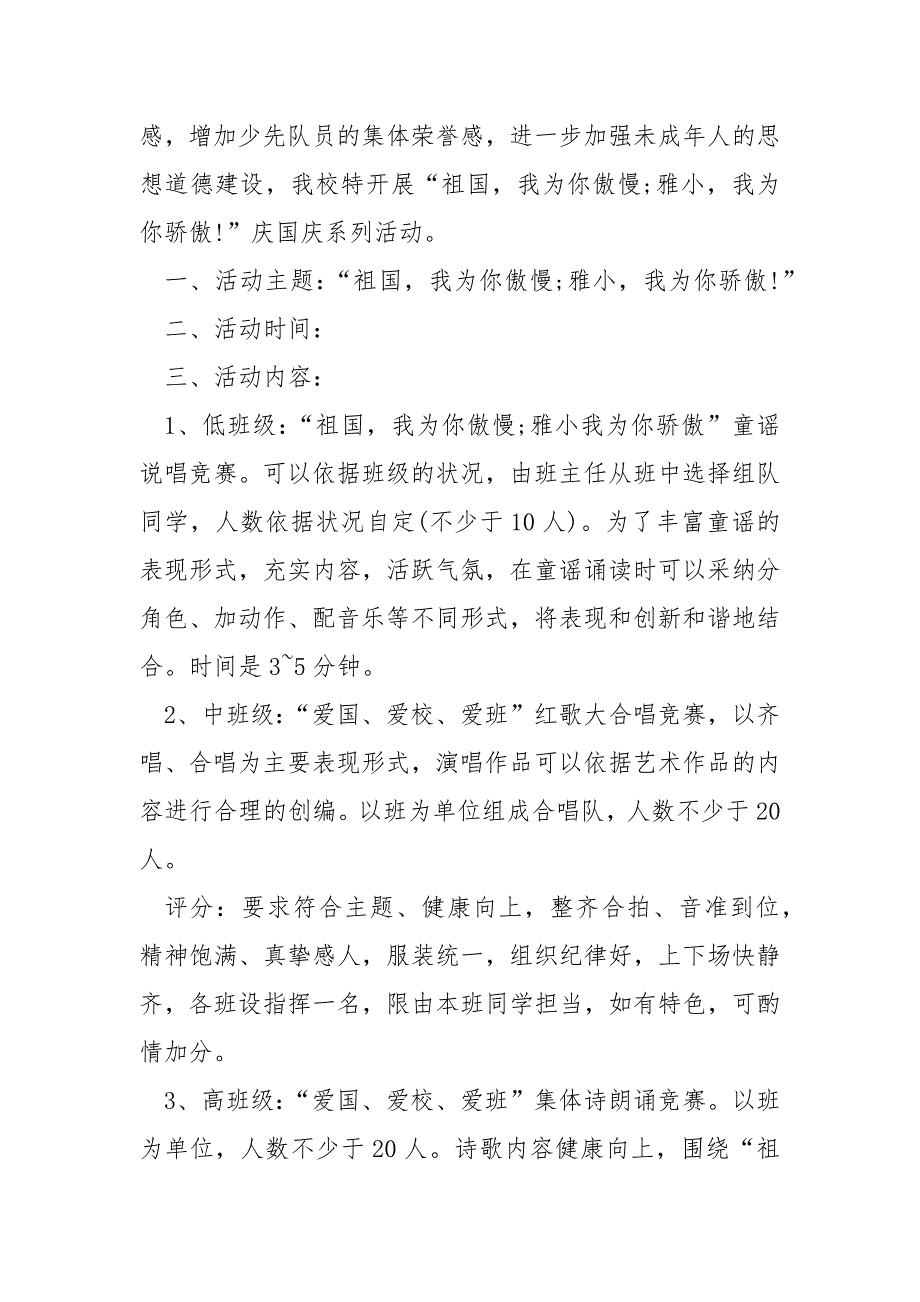 感，增加少先队员的集体荣誉感，进一步加强未成年人的思
想道德建设，我校特开展“祖国，我为你傲慢;雅小，我为
你骄傲!”庆国庆系列活动。
一、活动主题：“祖国，我为你傲慢;雅小，我为你骄傲!”
二、活动时间：
三、活动内容：
1、低班级：“祖国，我为你傲慢;雅小我为你骄傲”童谣
说唱竞赛。可以依据班级的状况，由班主任从班中选择组队
同学，人数依据状况自定(不少于10人)。为了丰富童谣的
表现形式，充实内容，活跃气氛，在童谣诵读时可以采纳分
角色、加动作、配音乐等不同形式，将表现和创新和谐地结
合。时间是3~5分钟。
2、中班级：“爱国、爱校、爱班”红歌大合唱竞赛，以齐
唱、合唱为主要表现形式，演唱作品可以依据艺术作品的内
容进行合理的创编。以班为单位组成合唱队，人数不少于20
人。
评分：要求符合主题、健康向上，整齐合拍、音准到位，
精神饱满、真挚感人，服装统一，组织纪律好，上下场快静
齐，各班设指挥一名，限由本班同学担当，如有特色，可酌
情加分。
3、高班级：“爱国、爱校、爱班”集体诗朗诵竞赛。以班
为单位，人数不少于20人。诗歌内容健康向上，围绕“祖